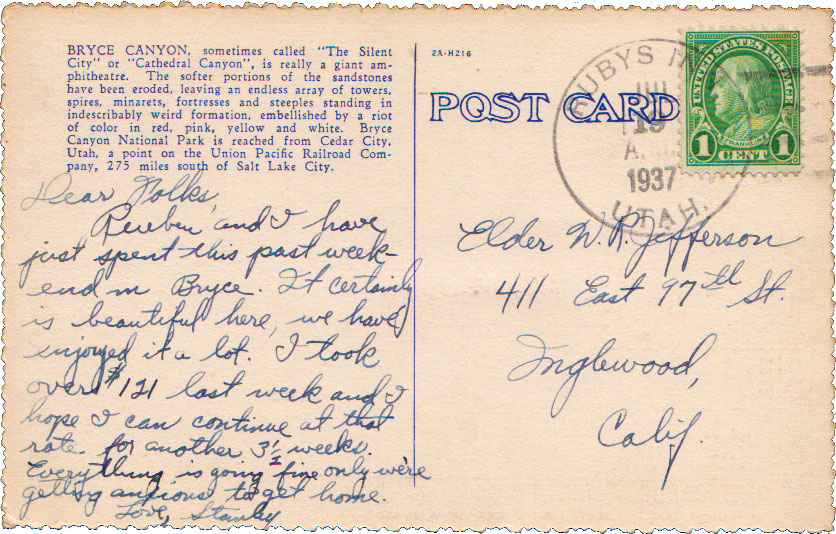 BRYCE CANYON, sometimes called "The Silent
City" or "Cathedral Canyon", is really a giant am-
phitheatre. The softer portions of the sandstones
have been eroded, leaving an endless array of towers,
spires, minarets, fortresses and steeples standing in
indescribably weird formation, embellished by a riot
of color in red, pink, yellow and white. Bryce
Canyon National Park is reached from Cedar City,
Utah, a point on the Union Pacific Railroad Com-
pany, 275 miles south of Salt Lake City.
Dear Folks,
Reuben and I have
just spent this past week-
end in Bryce. It certainly
is beautiful here, we have
enjoyed it a lot. I took
over $121 last week and I
hope I can continue at that
rate for another 3½ weeks.
Everything is going fine only we're
getting anxious to get home.
Love, Stanley
2A-H216
POST CARD
RUBYS
19
A.
1937
UTAH.
UNITED STATES POSTAGE
FRANKLIN
1 CENT 1
Elder W. R. Jefferson
411 East 97th St.
Inglewood,
Calif.